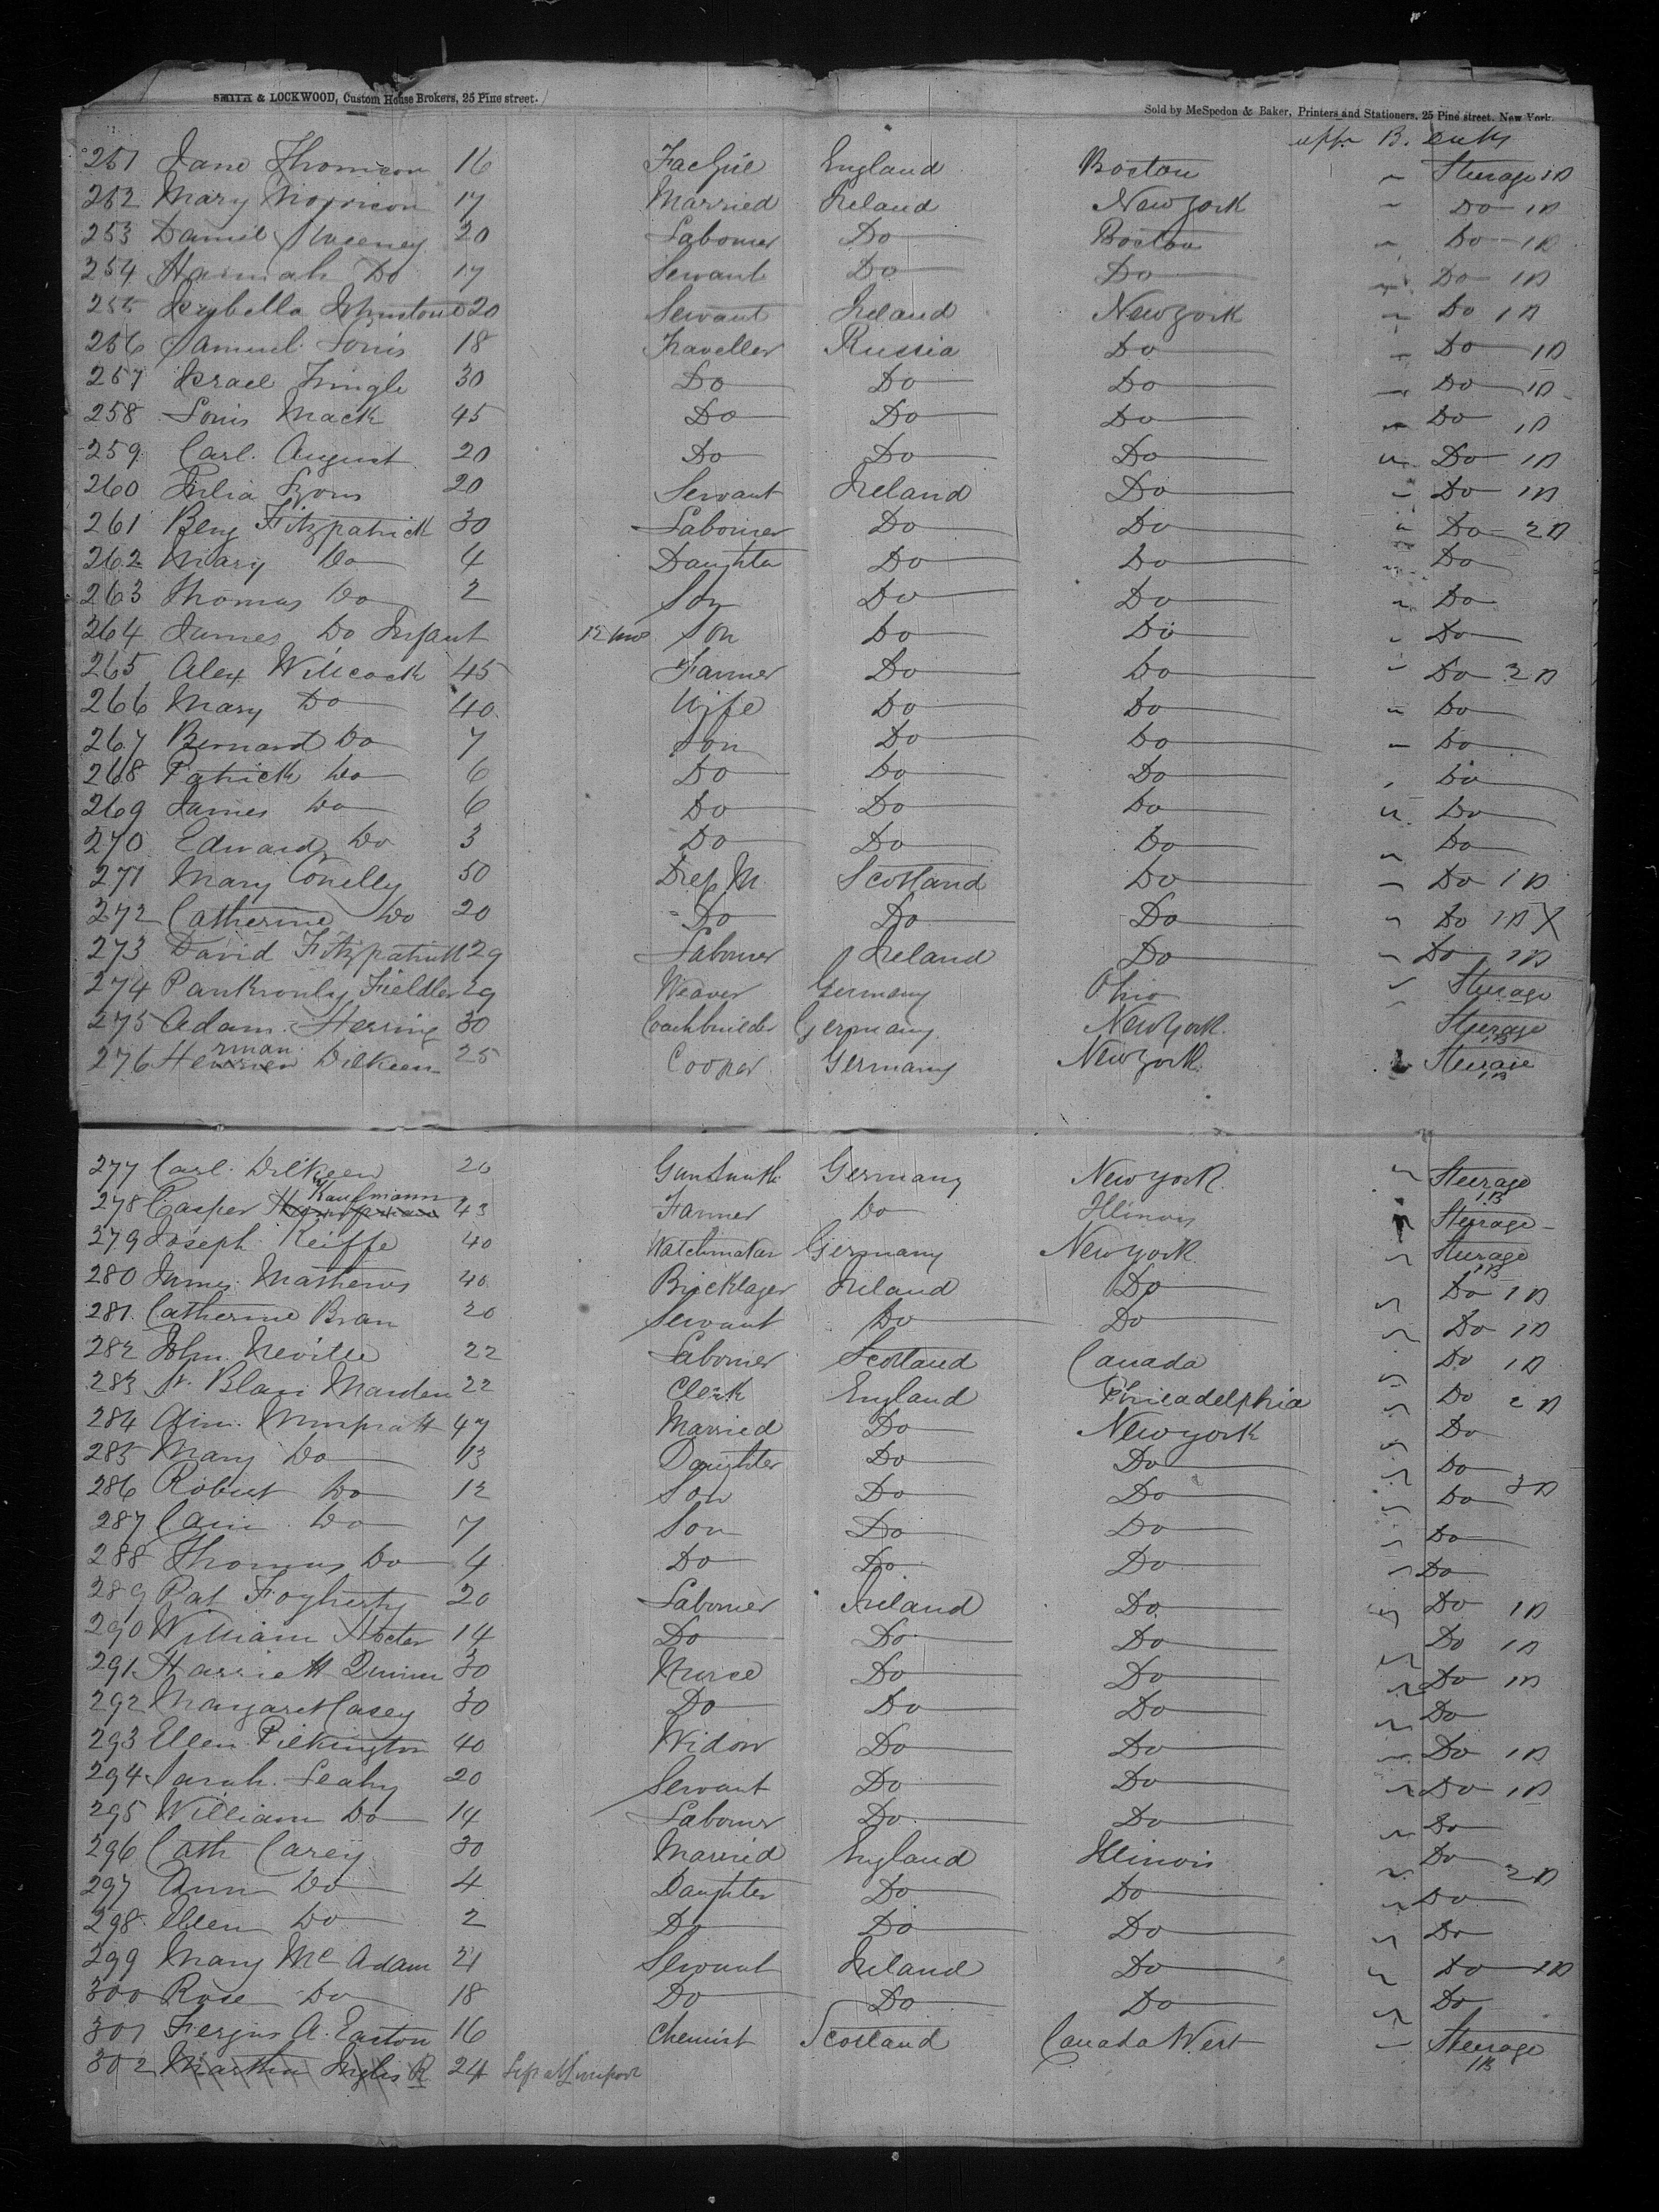 SMITH & LOCKWOOD, Custom House Brokers, 25 Pine street.
Sold by McSpedon & Baker, Printers and Stationers, 25 Pine street, New York.
251 Jane Thomson 16 England Boston Steerage 1B
252 Mary Morrison 17 Married Ireland New York Do 1B
253 Daniel Sweeney 20 Labourer Do Boston Do 1B
254 Hannah Do 17 Servant Do Do Do 1B
255 Isybella Johnstone 20 Servant Ireland New York Do 1B
256 Samuel Louis 18 Traveller Russia Do Do 1B
257 Israel 30 Do Do Do Do 1B
258 Louis Mack 45 Do Do Do Do 1B
259 Carl August 20 Do Do Do Do 1B
260 Julia Lyons 20 Servant Ireland Do Do 1B
261 Benj Fitzpatrick 30 Labourer Do Do Do 2B
262 Mary Do 4 Daughter Do Do Do
263 Thomas Do 2 Son Do Do Do
264 James Do Infant 12 mos Son Do Do Do
265 Alex Willcock 45 Farmer Do Do Do 3B
266 Mary Do 40 Wife Do Do Do
267 Bernard Do 7 Son Do Do Do
268 Patrick Do 6 Do Do Do Do
269 James Do 6 Do Do Do Do
270 Edward Do 3 Do Do Do Do
271 Mary Conelly 50 Dress M. Scotland Do Do 1B
272 Catherine Do 20 Do Do Do Do 1B X
273 David Fitzpatrick 29 Labourer Ireland Do Do 1B
274 Fieldler 29 Weaver Germany Ohio Steerage
275 Adam Herring 30 Coachbuilder Germany New York Steerage 1B
276 Herman Dilkeen 25 Cooper Germany New York Steerage 1B
277 Carl Dilkeen 26 Gunsmith Germany New York Steerage 1B
278 Casper Kaufmann 43 Farmer Do Illinois Steerage
279 Joseph Keiffe 40 Watchmaker Germany New York Steerage 1B
280 James Mathews 40 Bricklayer Ireland Do Do 1B
281 Catherine Bran 20 Servant Do Do Do 1B
282 John Neville 22 Labourer Scotland Canada Do 1B
283 St. Blair Marden 22 Clerk England Philadelphia Do
284 Muspratt 47 Married Do New York Do
285 Mary Do 13 Daughter Do Do Do
286 Robert Do 12 Son Do Do Do 3B
287 Do 7 Son Do Do Do
288 Thomas Do 4 Do Do Do Do
289 Pat Fogherty 20 Labourer Ireland Do Do 1B
290 William Hocter 14 Do Do Do Do 1B
291 Harriett Quinn 30 Nurse Do Do Do 1B
292 Margaret Casey 30 Do Do Do Do
293 Ellen Pilkington 40 Widow Do Do Do 1B
294 Sarah Leahy 20 Servant Do Do Do 1B
295 William Do 14 Labourer Do Do Do
296 Cath Carey 30 Married England Illinois Do 2B
297 Ann Do 4 Daughter Do Do Do
298 Ellen Do 2 Do Do Do Do
299 Mary McAdam 21 Servant Ireland Do Do
300 Rose Do 18 Do Do Do Do
301 Fergus A. Easton 16 Chemist Scotland Canada West Steerage 1B
302 Martha Inglis R 24 Left at Liverpool